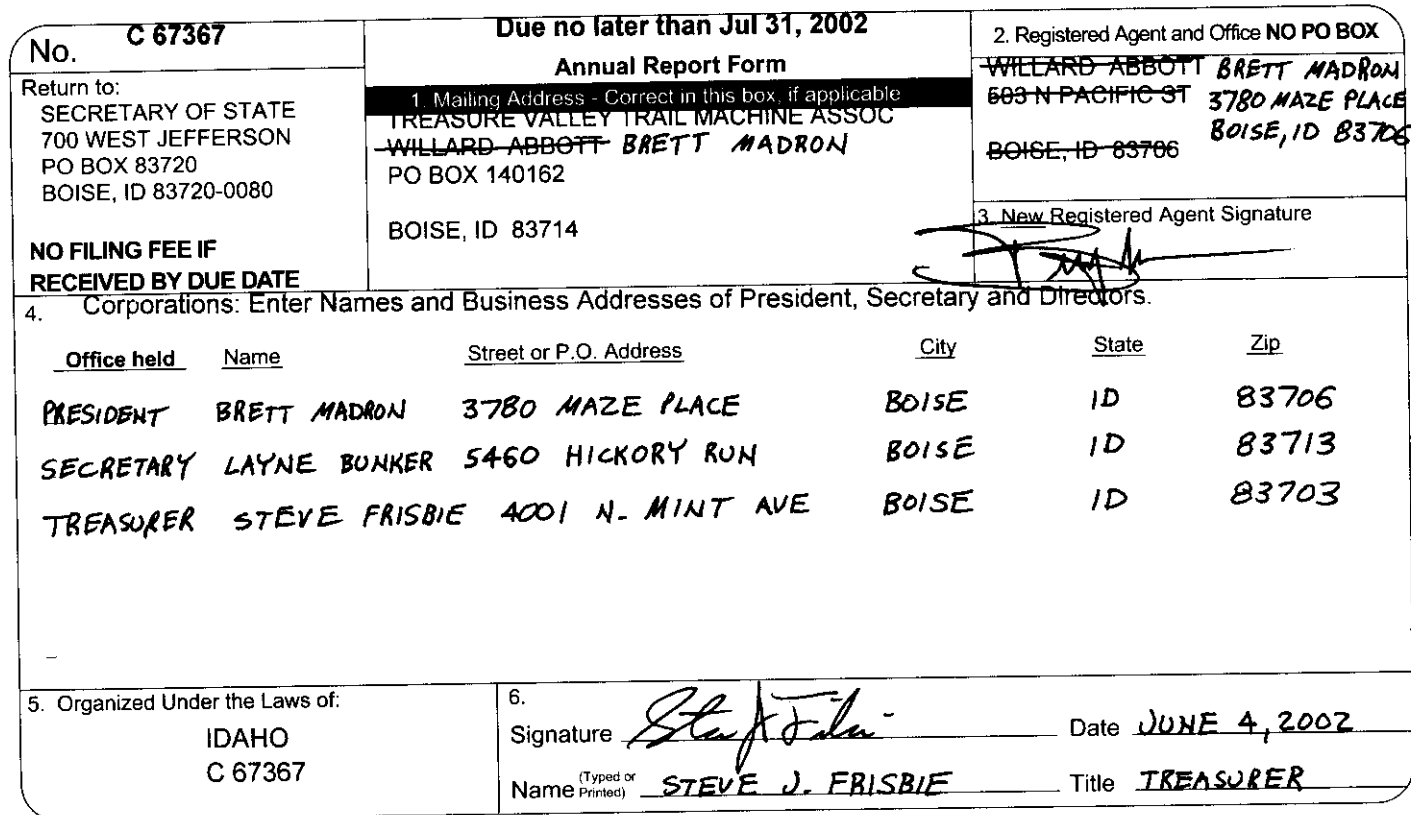 No. C 67367
Return to:
SECRETARY OF STATE
700 WEST JEFFERSON
PO BOX 83720
BOISE, ID 83720-0080
NO FILING FEE IF
RECEIVED BY DUE DATE
Due no later than Jul 31, 2002
Annual Report Form
1. Mailing Address - Correct in this box, if applicable
TREASURE VALLEY TRAIL MACHINE ASSOC
WILLARD ABBOTT BRETT MADRON
PO BOX 140162
BOISE, ID 83714
2. Registered Agent and Office NO PO BOX
WILLARD ABBOTT BRETT MADRON
603 N PACIFIC ST 3780 MAZE PLACE
BOISE, ID 83706
BOISE, ID 83706
3. New Registered Agent Signature
4. Corporations: Enter Names and Business Addresses of President, Secretary and Directors.
Office held Name Street or P.O. Address City State Zip
PRESIDENT BRETT MADRON 3780 MAZE PLACE BOISE ID 83706
SECRETARY LAYNE BUNKER 5460 HICKORY RUN BOISE ID 83713
TREASURER STEVE FRISBIE 4001 N. MINT AVE BOISE ID 83703
5. Organized Under the Laws of:
IDAHO
C 67367
6.
Signature Date JUNE 4, 2002
Name (Typed or Printed) STEVE J. FRISBIE Title TREASURER